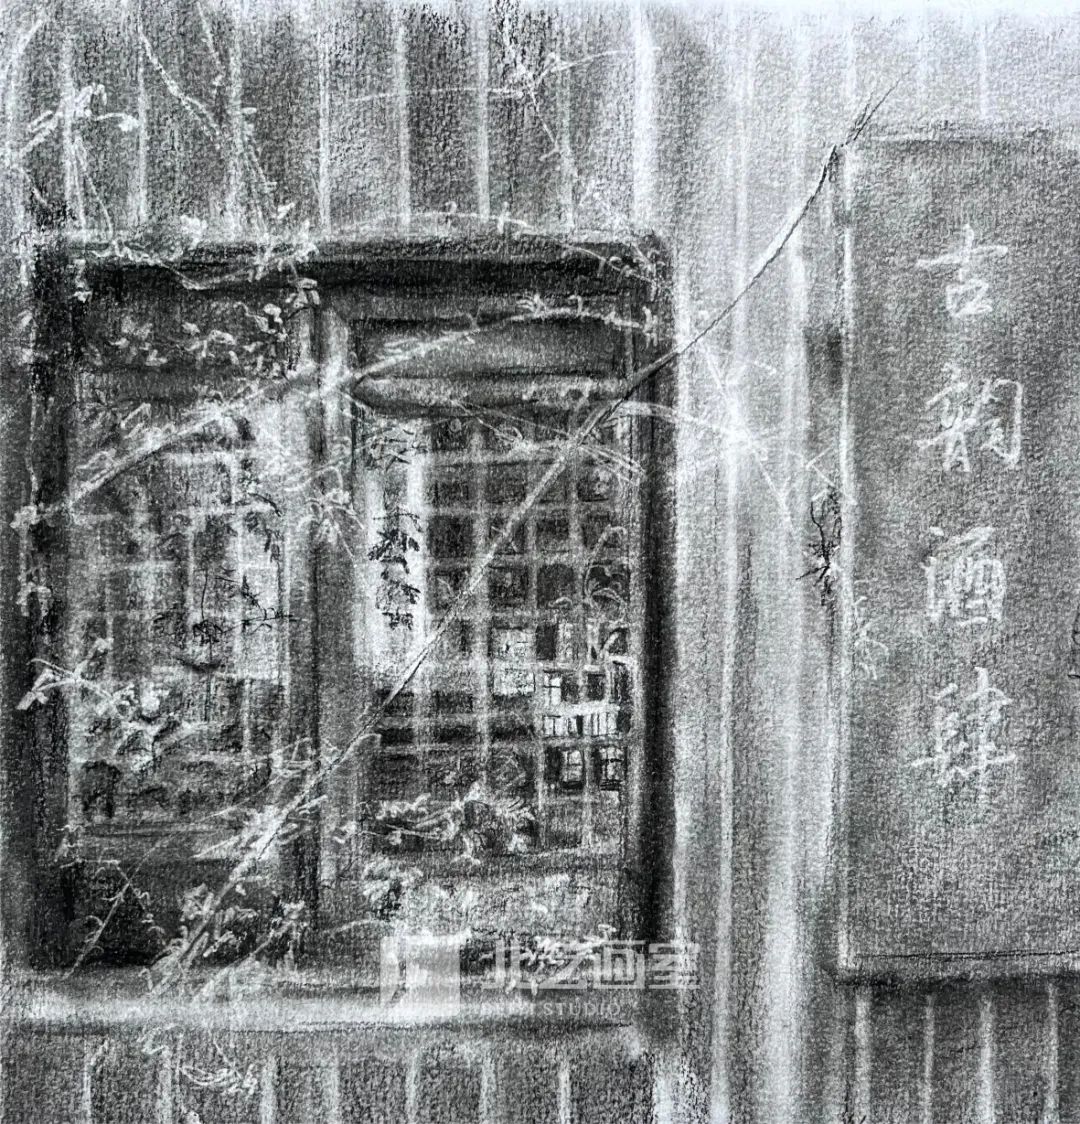 古韵酒肆
北艺画室
STUDIO